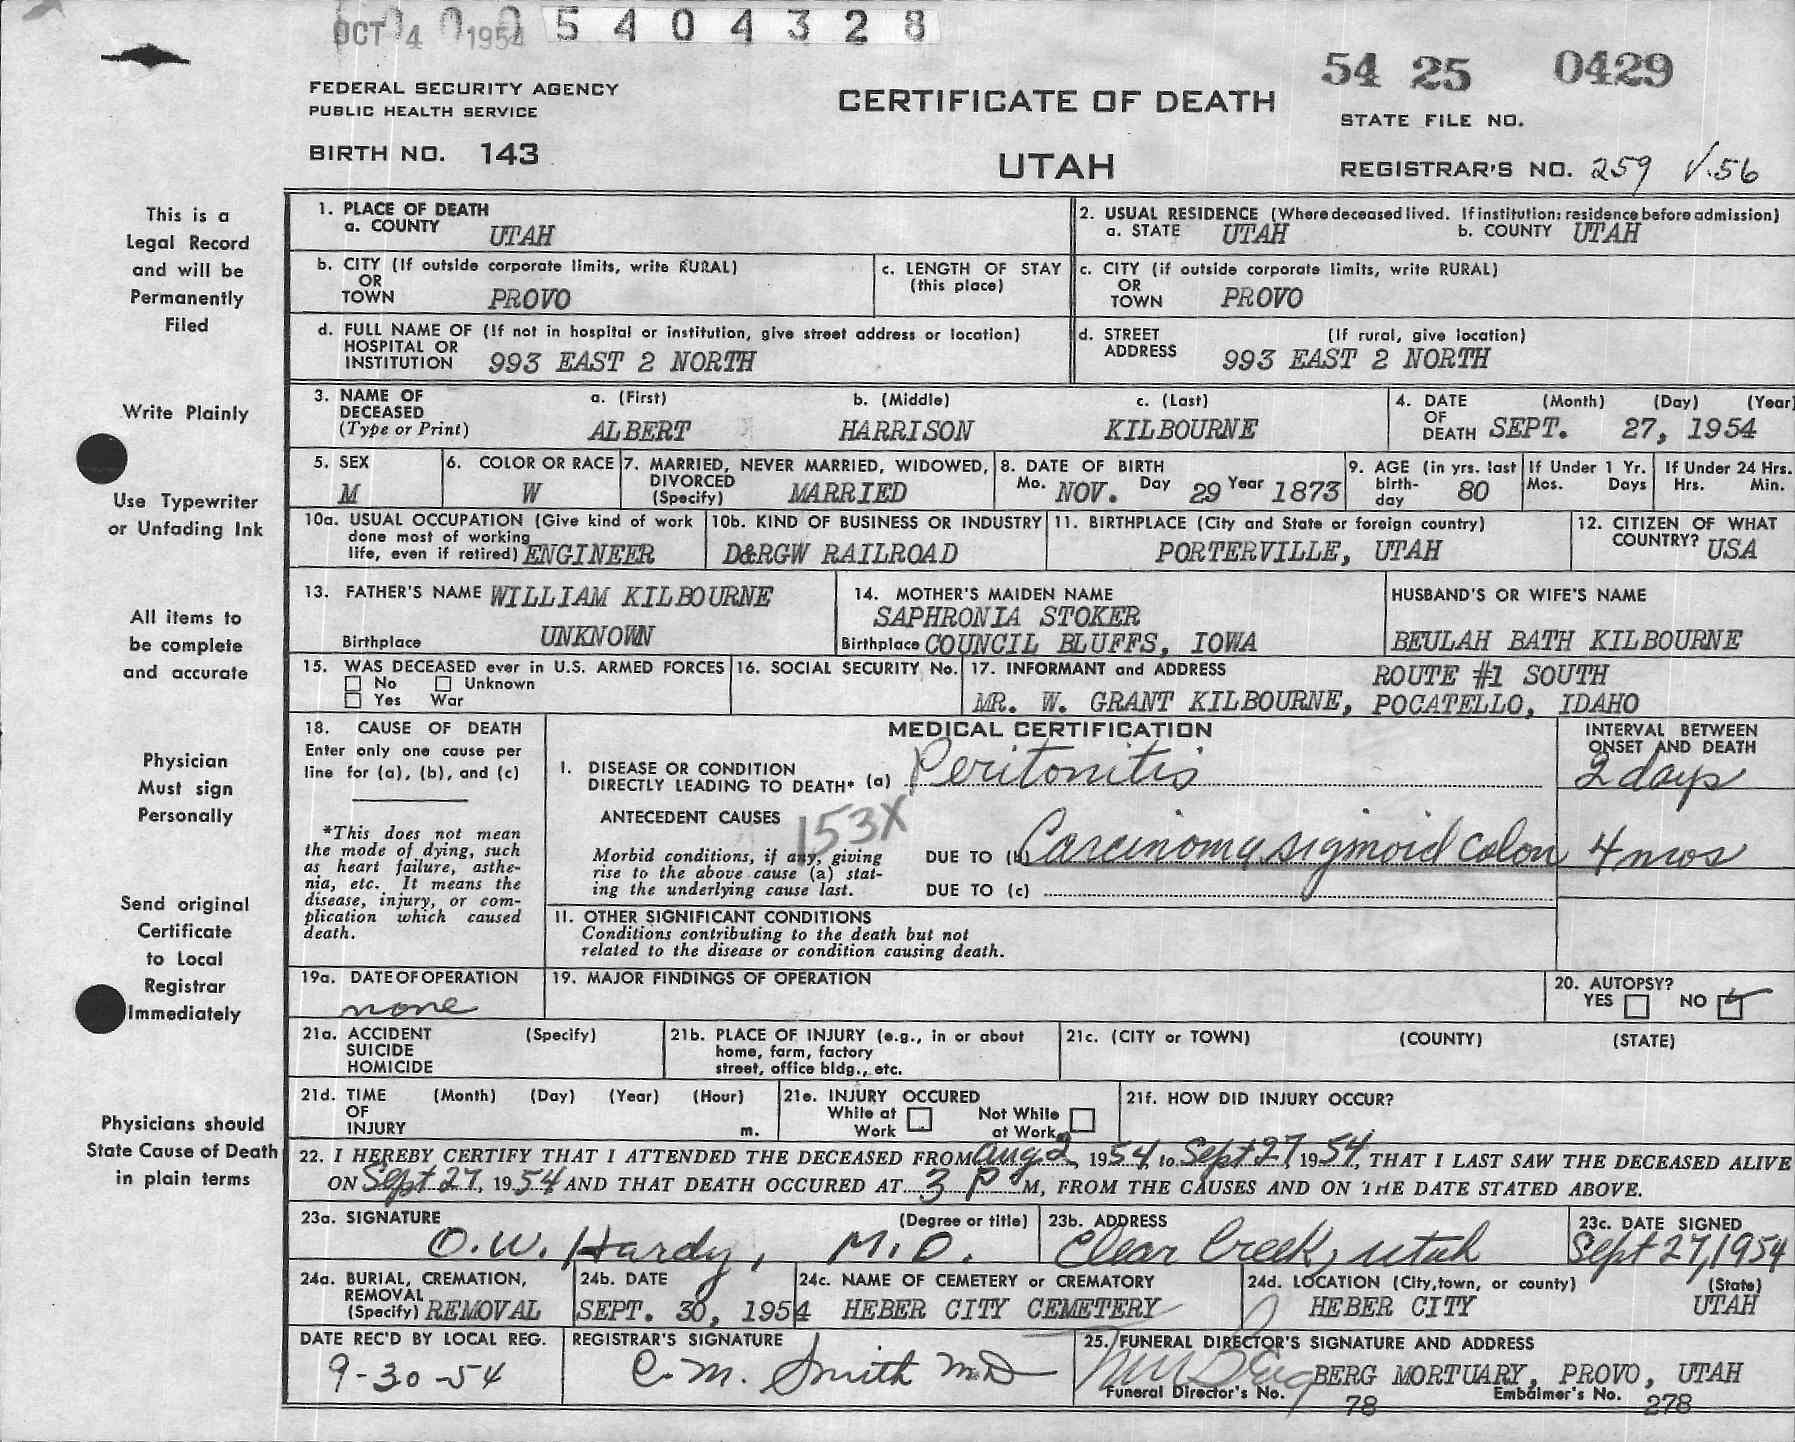 OCT 4 1954 5 4 0 4 3 2 8
54 25 0429
FEDERAL SECURITY AGENCY
PUBLIC HEALTH SERVICE
CERTIFICATE OF DEATH
STATE FILE NO.
BIRTH NO. 143
UTAH
REGISTRAR'S NO. 259 V.56
This is a
Legal Record
and will be
Permanently
Filed
Write Plainly
Use Typewriter
or Unfading Ink
All items to
be complete
and accurate
Physician
Must sign
Personally
Send original
Certificate
to Local
Registrar
Immediately
Physicians should
State Cause of Death
in plain terms
1. PLACE OF DEATH
a. COUNTY UTAH
2. USUAL RESIDENCE (Where deceased lived. If institution: residence before admission)
a. STATE UTAH b. COUNTY UTAH
b. CITY (If outside corporate limits, write RURAL)
OR
TOWN PROVO
c. LENGTH OF STAY
(this place)
c. CITY (if outside corporate limits, write RURAL)
OR
TOWN PROVO
d. FULL NAME OF (If not in hospital or institution, give street address or location)
HOSPITAL OR
INSTITUTION 993 EAST 2 NORTH
d. STREET (If rural, give location)
ADDRESS 993 EAST 2 NORTH
3. NAME OF a. (First) b. (Middle) c. (Last)
DECEASED
(Type or Print) ALBERT HARRISON KILBOURNE
4. DATE (Month) (Day) (Year)
OF
DEATH SEPT. 27, 1954
5. SEX
M
6. COLOR OR RACE
W
7. MARRIED, NEVER MARRIED, WIDOWED,
DIVORCED
(Specify) MARRIED
8. DATE OF BIRTH
Mo. NOV. Day 29 Year 1873
9. AGE (in yrs. last
birth-
day 80
If Under 1 Yr.
Mos. Days
If Under 24 Hrs.
Hrs. Min.
10a. USUAL OCCUPATION (Give kind of work
done most of working
life, even if retired) ENGINEER
10b. KIND OF BUSINESS OR INDUSTRY
D&RGW RAILROAD
11. BIRTHPLACE (City and State or foreign country)
PORTERVILLE, UTAH
12. CITIZEN OF WHAT
COUNTRY? USA
13. FATHER'S NAME WILLIAM KILBOURNE
Birthplace UNKNOWN
14. MOTHER'S MAIDEN NAME
SAPHRONIA STOKER
Birthplace COUNCIL BLUFFS, IOWA
HUSBAND'S OR WIFE'S NAME
BEULAH BATH KILBOURNE
15. WAS DECEASED ever in U.S. ARMED FORCES
No Unknown
Yes War
16. SOCIAL SECURITY No.
17. INFORMANT and ADDRESS ROUTE #1 SOUTH
MR. W. GRANT KILBOURNE, POCATELLO, IDAHO
18. CAUSE OF DEATH
Enter only one cause per
line for (a), (b), and (c)
*This does not mean
the mode of dying, such
as heart failure, asthe-
nia, etc. It means the
disease, injury, or com-
plication which caused
death.
MEDICAL CERTIFICATION
INTERVAL BETWEEN
ONSET AND DEATH
I. DISEASE OR CONDITION
DIRECTLY LEADING TO DEATH* (a) Peritonitis 2 days
ANTECEDENT CAUSES 153X
Morbid conditions, if any, giving
rise to the above cause (a) stat-
ing the underlying cause last.
DUE TO (b) Carcinoma sigmoid colon 4 mos
DUE TO (c)
II. OTHER SIGNIFICANT CONDITIONS
Conditions contributing to the death but not
related to the disease or condition causing death.
19a. DATE OF OPERATION
none
19. MAJOR FINDINGS OF OPERATION
20. AUTOPSY?
YES NO
21a. ACCIDENT (Specify)
SUICIDE
HOMICIDE
21b. PLACE OF INJURY (e.g., in or about
home, farm, factory
street, office bldg., etc.
21c. (CITY or TOWN) (COUNTY) (STATE)
21d. TIME (Month) (Day) (Year) (Hour)
OF
INJURY m.
21e. INJURY OCCURED
While at Not While
Work at Work
21f. HOW DID INJURY OCCUR?
22. I HEREBY CERTIFY THAT I ATTENDED THE DECEASED FROM Aug 2, 1954, to Sept 27, 1954, THAT I LAST SAW THE DECEASED ALIVE
ON Sept 27, 1954 AND THAT DEATH OCCURED AT 3 P M, FROM THE CAUSES AND ON THE DATE STATED ABOVE.
23a. SIGNATURE (Degree or title)
O.W. Hardy, M.D.
23b. ADDRESS
Clear Creek, Utah
23c. DATE SIGNED
Sept 27, 1954
24a. BURIAL, CREMATION,
REMOVAL
(Specify) REMOVAL
24b. DATE
SEPT. 30, 1954
24c. NAME OF CEMETERY or CREMATORY
HEBER CITY CEMETERY
24d. LOCATION (City, town, or county) (State)
HEBER CITY UTAH
DATE REC'D BY LOCAL REG.
9-30-54
REGISTRAR'S SIGNATURE
C. M. Smith M.D
25. FUNERAL DIRECTOR'S SIGNATURE AND ADDRESS
BERG MORTUARY, PROVO, UTAH
Funeral Director's No. 78 Embalmer's No. 278